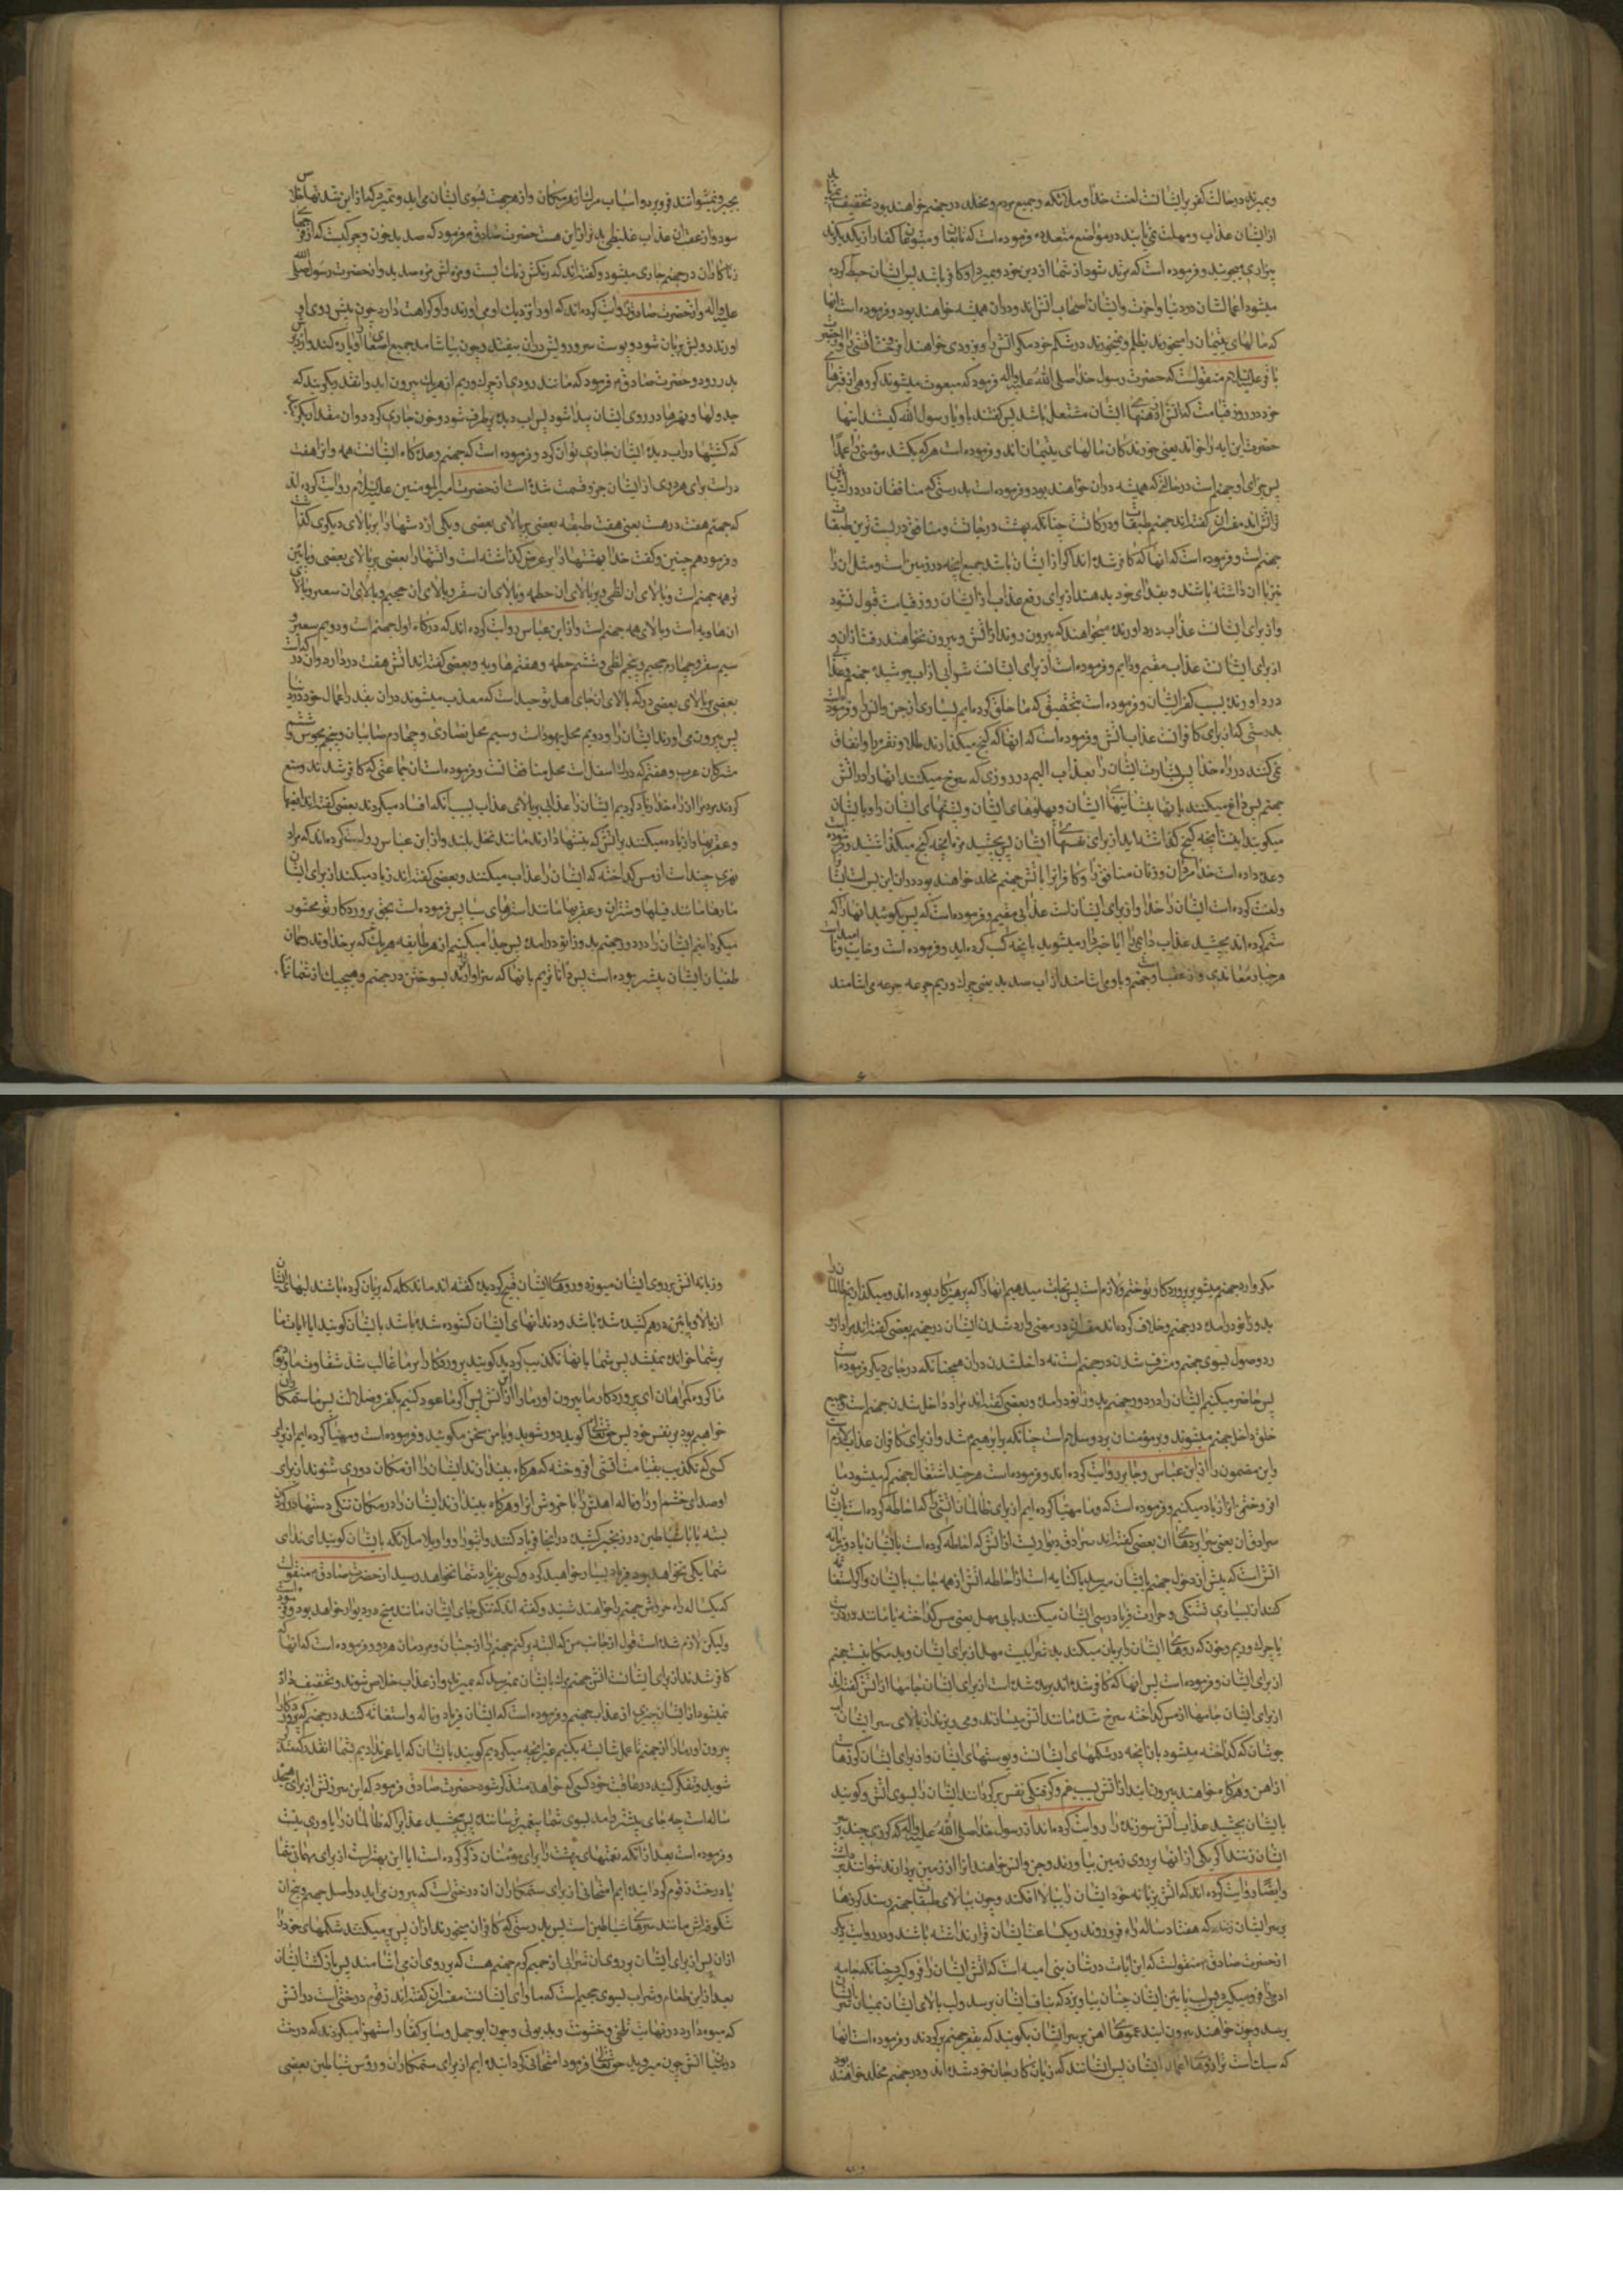 و بمیرند در حالت کفر بر ایشانست لعنت خدا و ملائکه و جمیع مردم و مخلد در جهنم خواهند بود تخفیف نمییابد
از ایشان عذاب و مهلت نمی یابند در مواضع متعدده فرموده است که تابعان و متبوعهای کفار از یکدیگر
بیزاری میجویند و فرموده است که هر که مرتد شود از شما از دین خود و بمیرد و او کافر باشد پس ایشان حبط کرده
میشود اعمالشان در دنیا و آخرت و ایشان اصحاب آتش اند و در آن همیشه خواهند بود و فرموده است آنها
که مالهای یتیمان را میخورند بظلم نمیخورند در شکم خود مگر آتش را و بزودی خواهند افروخت آتشی را و حضرت
باقر علیه السلام منقولست که حضرت رسول خدا صلی الله علیه و آله فرمود که مبعوث میشوند گروهی از قبرهای
خود در روز قیامت که آتش از دهنهای ایشان مشتعل باشد پس گفتند باو یا رسول الله کیستند اینها
حضرت این آیه را خواند یعنی خورندگان مالهای یتیمان اند و فرموده است هر که بکشد مؤمنی را عمداً
پس جزای او جهنم است در حالتی که همیشه در آن خواهند بود و فرموده است بدرستی که منافقان در درک پایین
تر آتش اند مفسران گفته اند جهنم طبقات و درکاتست چنانکه بهشت درجاتست و منافق در پست ترین طبقات
جهنم است و فرموده است که آنها که کافر شده اند اگر از ایشان باشد جمیع آنچه در زمین است و مثل آن را
نیز با آن داشته باشند و بفدای خود بدهند از برای رفع عذاب از ایشان روز قیامت قبول نشود
و از برای ایشانست عذاب دردآورنده میخواهند که بیرون روند از آتش و بیرون نخواهند رفت از آن و
از برای ایشانست عذاب مقیم و دایم و فرموده است از برای ایشانست شرابی از آب جوشیده جهنم و عذابی
دردآورنده بسبب کفر ایشان و فرموده است بتحقیق که ما خلق کرده ایم بسیاری از جن و انس را و فرموده است
بدرستی که از برای کافرانست عذاب آتش و فرموده است که آنها که گنج میگذارند طلا و نقره را و انفاق
نمی کنند در راه خدا پس بشارت ایشان را بعذاب الیم در روزی که سرخ میکنند آنها را در آتش
جهنم پس داغ میکنند بآنها پیشانیهای ایشان و پهلوهای ایشان و پشتهای ایشان را و بایشان
میگویند اینست آنچه گنج گذاشته اید از برای نفسهای ایشان پس بچشید مزه آنچه گنج میگذاشتید و فرموده
وعده داده است خدا مردان و زنان منافق را و کافران را بآتش جهنم مخلد خواهند بود در آن این بس است ایشان را
و لعنت کرده است ایشان را خدا و از برای ایشانست عذابی مقیم و فرموده است که پس بگوئید آنها را که
ستم کرده اند بچشید عذاب دایمی را آیا جزا داده میشوید بآنچه کسب کرده اید و فرموده است و خایب و ناامید است
هر جبار معاندی و از عقب او جهنم و باو می آشامند از آب صدید یعنی چرک و ریم جرعه جرعه می آشامند
بجبر و نمیتوانند فرو برد و اسباب مرگ از هر مکان و از هر جهت بسوی ایشان می آید و نمیمیرد که از این شدتها خلاص
شود و از عقب آن عذاب غلیظی بدتر از این هست حضرت صادق فرمود که صدید خون و چرکیست که از فرجهای
زناکاران در جهنم جاری میشود و گفته اند که رنگش رنگ آبست و مزه اش مزه صدید و از حضرت رسول صلی الله
علیه و آله و از حضرت صادق روایت کرده اند که او را نزدیک او می آورند و او کراهت دارد چون پیش روی او
آورند رویش بریان شود و پوست سر و رویش در آن بیفتد و چون بیاشامد جمیع امعای او را پاره کند و از زیرش
بدر رود و حضرت صادق فرمود که مانند رودی از چرک و ریم از هر یک بیرون آید و آنقدر بگریند که
جدولها و نهرها در روی ایشان پیدا شود پس آب دیده برطرف شود و خون جاری گردد و آن مقدار بگریند
که کشتیها در آب دیده ایشان جاری توان کرد و فرموده است که جهنم وعده گاه ایشانست همه و از آن هفت
در است برای هر دری از ایشان جزء قسمت شده است از حضرت امیر المومنین علیه السلام روایت کرده اند
که جهنم هفت در هست یعنی هفت طبقه بعضی بر بالای بعضی و یکی از دستها را بر بالای دیگری گذاشت
و فرمود همچنین و گفت خدا بهشتها را بر عرض گذاشته است و آتشها را بعضی بر بالای بعضی و پایین
تر همه جهنم است و بالای آن لظی و بر بالای آن حطمه و بالای آن سقر و بالای آن جحیم و بالای آن سعیر و بالای
آن هاویه است و بالای همه جهنم است و از ابن عباس روایت کرده اند که درگاه اول جهنم است و دویم سعیر و
سیم سقر و چهارم جحیم و پنجم لظی و ششم حطمه و هفتم هاویه و بعضی گفته اند آتش هفت در دارد و آن درکات
بعضی بر بالای بعضی درکه بالای آن جای اهل توحید است که معذب میشوند در آن بقدر اعمال خود در دنیا
پس بیرون می آورند ایشان را و دویم محل یهود است و سیم محل نصاری و چهارم صابیان و پنجم مجوس و ششم
مشرکان عرب و هفتم که درک اسفل است محل منافقانست و فرموده است آن جماعتی که کافر شدند و منع
کردند مردم را از راه خدا زیاد کردیم ایشان را عذابی بر بالای عذاب بسبب آنکه افساد میکردند بعضی گفته اند افعیها
و عقربها را زیاده میکنند بر آتش که نیشها دارند مانند نخل بلند و از ابن عباس روایت کرده اند که مراد
نهری چند است از مس گداخته که ایشان را عذاب میکنند و بعضی گفته اند زیاد میکنند از برای ایشان
مارها مانند فیلها و شتران و عقربها مانند استرهای سیاه پس فرموده است بحق پروردگار تو محشور
میگردانیم ایشان را در دور جهنم بدو زانو درآمده پس جدا میکنیم از هر طایفه هر یک که بر خداوند رحمان
طغیان ایشان بیشتر بوده است پس داناتریم بآنها که سزاوارترند بسوختن در جهنم و هیچیک از شما نیست
مگر وارد جهنم میشود بر پروردگار تو حتم و لازم است پس نجات میدهیم آنها را که پرهیزکار بوده اند و میگذاریم ظالمان را
بدو زانو درآمده در جهنم و خلاف کرده اند مفسران در معنی وارد شدن ایشان در جهنم بعضی گفته اند مراد از
ورود وصول بسوی جهنم و مشرف شدن در جهنم است نه داخلشدن در آن همچنانکه در جای دیگر فرموده است
پس حاضر میکنیم ایشان را در دور جهنم بدو زانو درآمده و بعضی گفته اند مراد داخل شدن جهنم است و جمیع
خلق داخل جهنم میشوند و بر مؤمنان برد و سلام است چنانکه بر ابراهیم شد و از برای کافران عذاب لازم است
و این مضمون را از ابن عباس و جابر روایت کرده اند و فرموده است هر چند اشتعال جهنم کم میشود ما
افروختن آن را زیاد میکنیم و فرموده است که ما مهیا کرده ایم از برای ظالمان آتشی را که احاطه کرده است بایشان
سرادق آن یعنی سراپردهای آن بعضی گفته اند سرادق دیواریست از آتش که احاطه کرده است بایشان یا دود و زبانه
آتش است که پیش از دخول جهنم بایشان میرسد یا کنایه است از احاطه آتش از همه جانب بایشان و اگر استغاثه
کنند از بسیاری تشنگی و حرارت فریادرسی ایشان میکنند بآبی مهل یعنی مس گداخته یا مانند درد زیت
یا چرک و ریم و خون که رویهای ایشان را بریان میکند بد شرابیست مهل از برای ایشان و بد مکانیست جهنم
از برای ایشان و فرموده است پس آنها که کافر شده اند بریده شده است از برای ایشان جامها از آتش گفته اند
از برای ایشان جامها از مس گداخته سرخ شده مانند آتش میسازند و می ریزند از بالای سر ایشان آب
جوشان که گداخته میشود بآن آنچه در شکمهای ایشانست و پوستهای ایشان و از برای ایشان گرزهاست
از آهن و هرگاه میخواهند بیرون آیند از آتش بسبب غم و گرفتگی نفس برگردانند ایشان را بسوی آتش و گویند
بایشان بچشید عذاب آتش سوزنده را روایت کرده اند از رسول خدا صلی الله علیه و آله که گرزی چند بر سر
ایشان زنند اگر یکی از آنها بر روی زمین بیاورند و جن و انس خواهند آن را از زمین بردارند نتوانند برداشت
و ایضا روایت کرده اند که آتش بزبانه خود ایشان را ببالا افکند و چون ببالای طبقات جهنم رسند گرزها
بر سر ایشان زنند که هفتاد ساله راه فرو روند و یکساعت ایشان قرار نداشته باشند و در روایت دیگر
از حضرت صادق منقولست که این آیات در شان بنی امیه است که آتش ایشان را فرو گیرد چنانکه جامه
آدمی را فرو میگیرد پس لب پایین ایشان چنان بیاویزد که بناف ایشان برسد و لب بالای ایشان بمیان سر ایشان
برسد و چون خواهند بیرون آیند عمودهای آهن بر سر ایشان بکوبند که بقعر جهنم برگردند و فرموده است آنها
که سبک است ترازوهای اعمال ایشان پس ایشانند که زیانکار بجان خود شده اند و در جهنم مخلد خواهند بود
و زبانه آتش بر روی ایشان میوزد و رویهای ایشان قبیح گردیده گفته اند مانند کله که بریان کرده باشند لبهای ایشان
از بالا و پایین درهم کشیده شده باشد و دندانهای ایشان گشوده شده باشد بایشان گویند آیا آیات ما
بر شما خوانده نمیشد پس شما بآنها تکذیب کردید گویند پروردگارا بر ما غالب شد شقاوت ما و بودیم
ما گروه گمراهان ای پروردگار ما بیرون آور ما را از این آتش پس اگر ما عود کنیم بکفر و ضلالت پس ما ستمکاران
خواهیم بود بر نفس خود پس حق تعالی گوید دور شوید و با من سخن مگوئید و فرموده است و مهیا کرده ایم از برای
کسی که تکذیب بقیامت آتشی افروخته که هرگاه ببیند از ایشان را از مکان دوری شنوند از برای
او صدای خشم او را و ناله اهلش را با خروش آن را و هرگاه بیندازند ایشان را در مکان تنگی دستها در گردن
بسته یا با شیاطین در زنجیر کشیده در آنجا فریاد کنند واثبورا و واویلا ملائکه بایشان گویند ندای
شما یکی نخواهد بود فریاد بسیار خواهید کرد و کسی بفریاد شما نخواهد رسید از حضرت صادق منقولست
که یکساله راه خروش جهنم را خواهند شنید و گفته اند که تنگی جای ایشان مانند میخ در دیوار خواهد بود و فرموده است
ولیکن لازم شده است قول از جانب من که البته پر کنم جهنم را از جنیان و مردمان هر دو و فرموده است که آنها که
کافر شدند از برای ایشانست آتش جهنم مرگ بایشان نمیرسد که بمیرند و از عذاب خلاص شوند و تخفیف داده
نمیشود از ایشان چیزی از عذاب جهنم و فرموده است که ایشان فریاد و ناله و استغاثه کنند در جهنم که پروردگارا
بیرون آور ما را از جهنم تا عمل شایسته بکنیم غیر آنچه میکردیم گویند بایشان که آیا عمر ندادیم شما را آنقدر که متذکر
شوید و تفکر کنید در عاقبت خود کسی که خواهد متذکر شود حضرت صادق فرمود که این سرزنش از برای هجده
ساله است چه جای بیشتر و آمد بسوی شما پیغمبر ترساننده پس بچشید عذاب را که ظالمان را یاوری نیست
و فرموده است بعد از آنکه نعمتهای بهشت را برای مؤمنان ذکر کرده است آیا این بهتر است از برای مهمانی شما
یا درخت زقوم گردانیده ایم امتحانی از برای ستمکاران آن درختی است که بیرون می آید در اصل جحیم و بیخ آن
شکوفه اش مانند سرهای شیاطین است پس بدرستی که کافران میخورند از آن پس پر میکنند شکمهای خود را
از آن پس از برای ایشان بر روی آن شرابی از حمیم گرم جهنم هست که بر روی آن می آشامند پس بازگشت ایشان
بعد از این طعام و شراب بسوی جحیم است که ماوای ایشانست مفسران گفته اند زقوم درختی است در آتش
که میوه دارد در نهایت تلخی و خشونت و بدبوئی و چون ابو جهل و سایر کفار استهزا میکردند که درخت
در میان آتش چون میروید حق تعالی فرمود امتحانی گردانیده ایم از برای ستمکاران و رؤس شیاطین بعضی